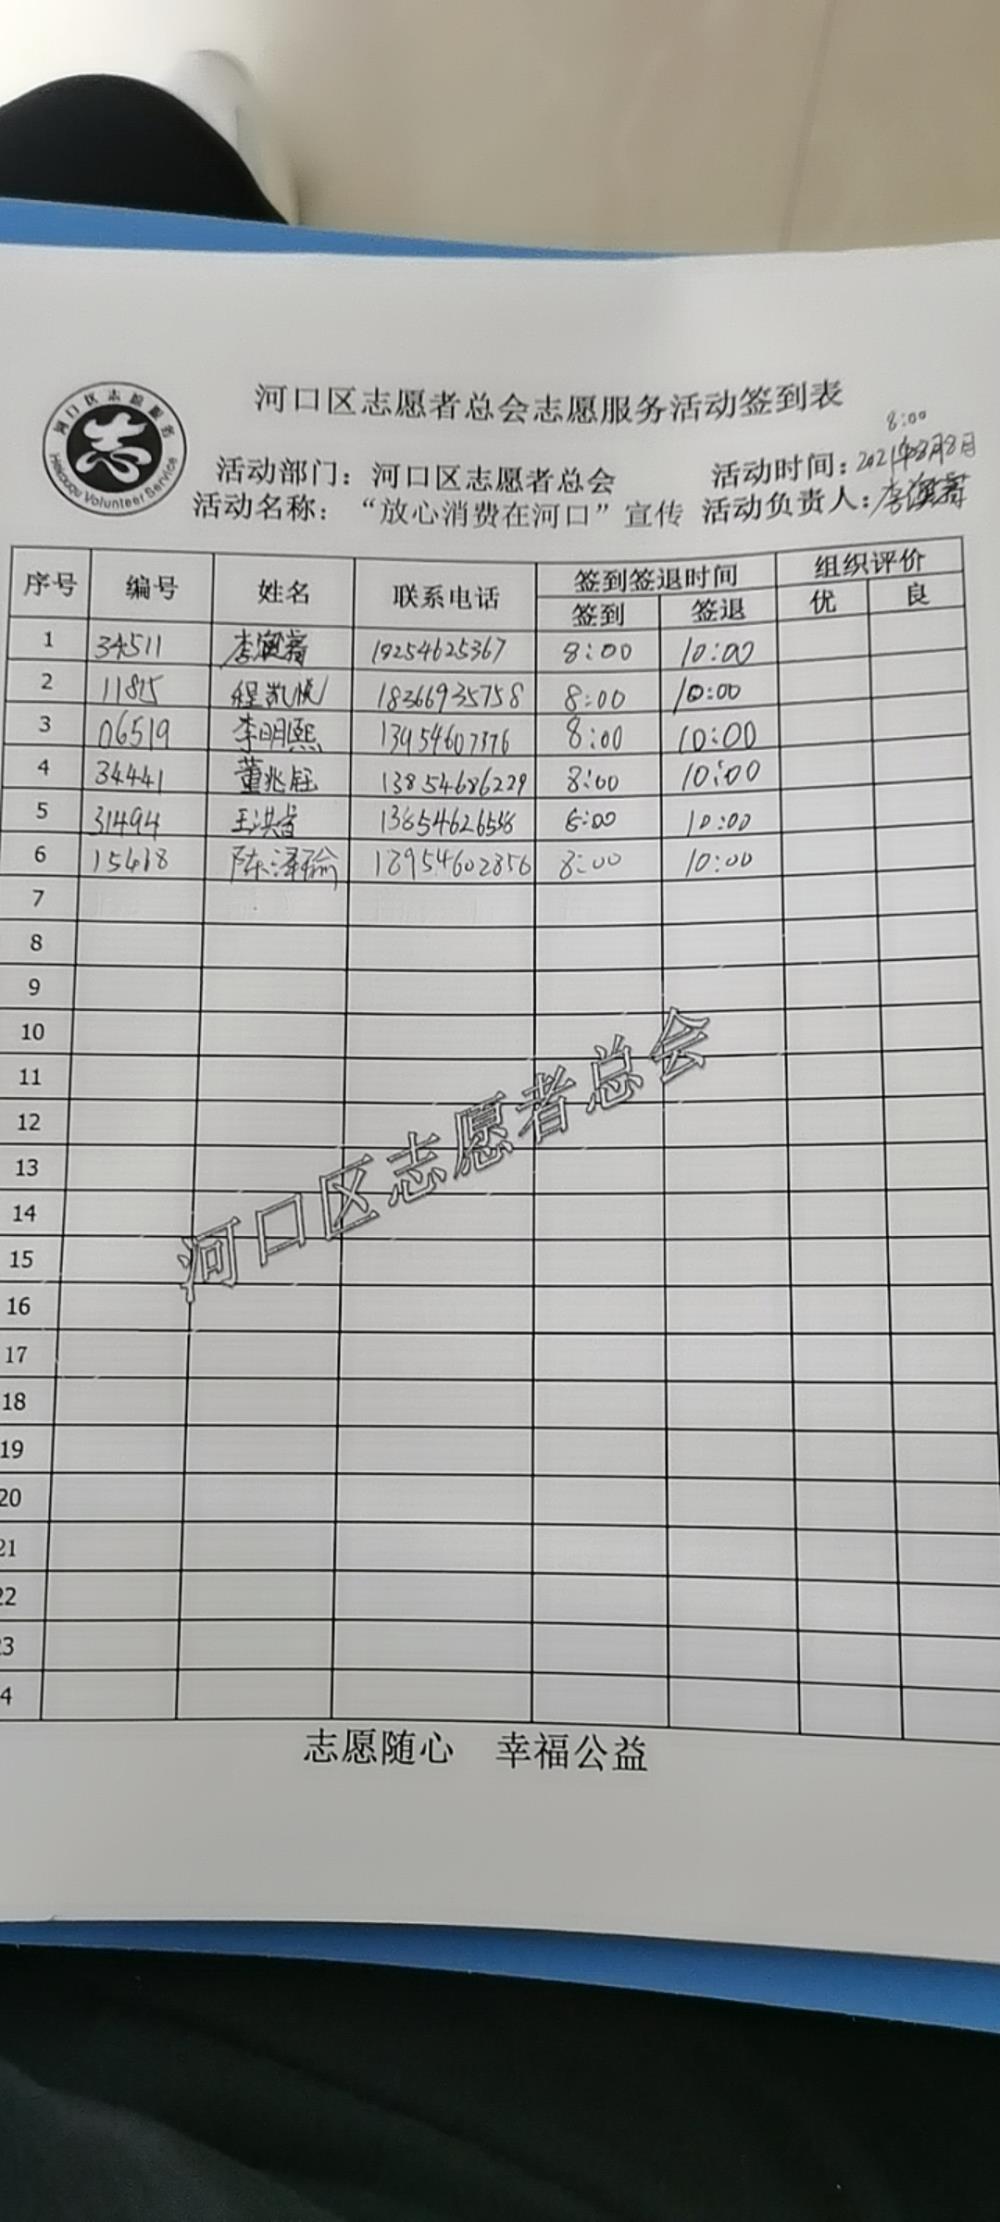 河口区志愿服务
Hekouqu Volunteer Service
志
河口区志愿者总会志愿服务活动签到表
8:00
活动部门：河口区志愿者总会 活动时间：2021年8月8日
活动名称：“放心消费在河口”宣传 活动负责人：李
序号 编号 姓名 联系电话 签到签退时间 组织评价
签到 签退 优 良
1 34511 李 18254625367 8:00 10:00
2 11815 程凯悦 18366935758 8:00 10:00
3 06519 李明熙 13954607376 8:00 10:00
4 34441 董兆钰 13854686229 8:00 10:00
5 31494 王洪 8:00 10:00
6 15418 陈泽瑜 18954602856 8:00 10:00
7
8
9
10
11
12
13
14
15
16
17
18
19
20
21
22
23
4
河口区志愿者总会
志愿随心 幸福公益